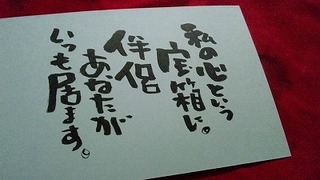 私の心という
宝箱に。
伴侶
あなたが
いつも居ます。